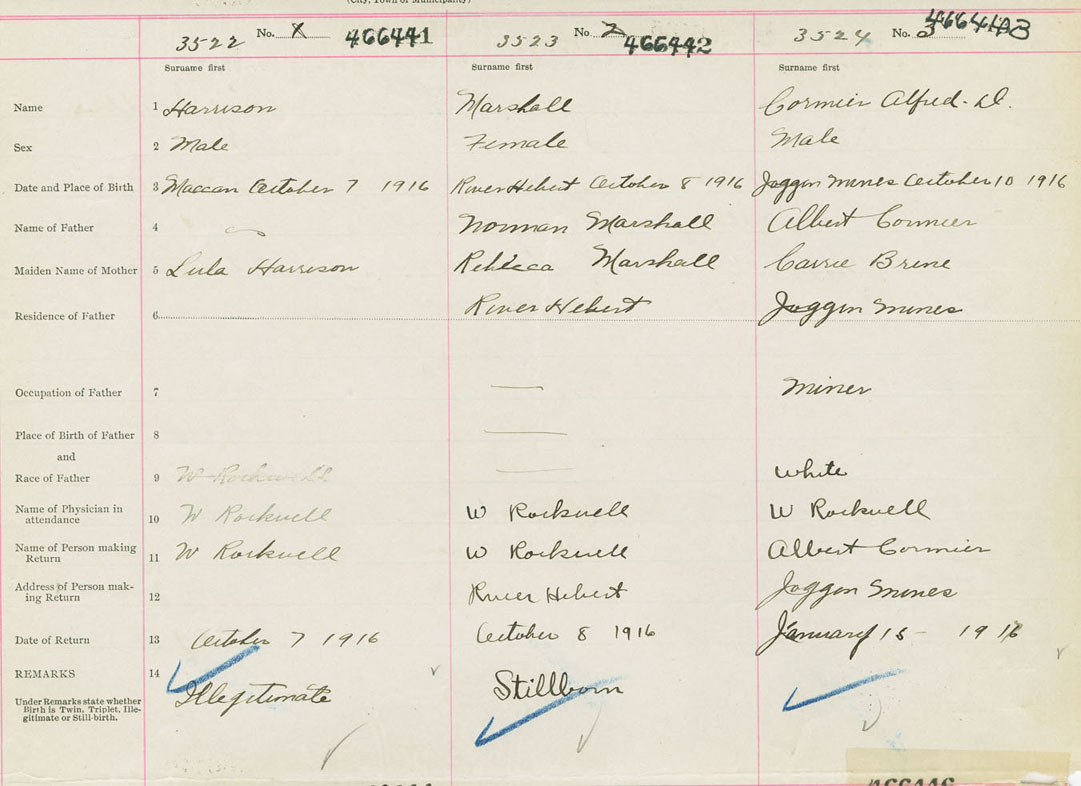 (City, Town or Municipality)
3522 No. X 466441 3523 No. 2 466442 3524 No. 3 466443
Surname first Surname first Surname first
Name 1 Harrison Marshall Cormier Alfred. D.
Sex 2 Male Female Male
Date and Place of Birth 3 Maccan October 7 1916 River Hebert October 8 1916 Joggin Mines October 10 1916
Name of Father 4 Norman Marshall Albert Cormier
Maiden Name of Mother 5 Lula Harrison Rebecca Marshall Carrie Brine
Residence of Father 6 River Hebert Joggin Mines
Occupation of Father 7 — Miner
Place of Birth of Father 8 —
and
Race of Father 9 W Rockwell — White
Name of Physician in
attendance 10 W Rockwell W Rockwell W Rockwell
Name of Person making
Return 11 W Rockwell W Rockwell Albert Cormier
Address of Person mak-
ing Return 12 River Hebert Joggin Mines
Date of Return 13 October 7 1916 October 8 1916 January 15 - 1916
REMARKS 14 Illegitimate Stillborn
Under Remarks state whether
Birth is Twin, Triplet, Ille-
gitimate or Still-birth.